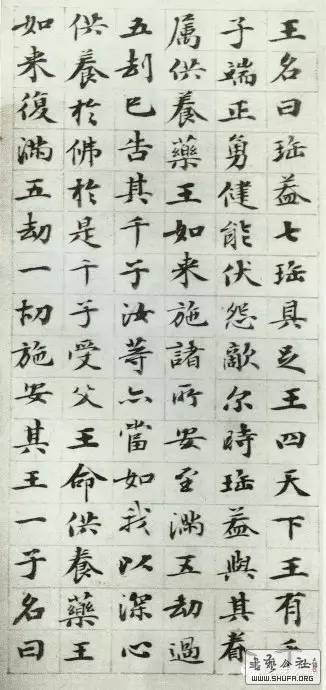 王名曰珤盖七珤具足王四天下王有千
子端正勇健能伏怨敵尔時珤盖與其眷
属供養藥王如来施諸所安至滿五劫過
五劫已告其千子汝等亦當如我以深心
供養於佛於是千子受父王命供養藥王
如来復滿五劫一切施安其王一子名曰
書藝公社
WWW.SHUFA.ORG